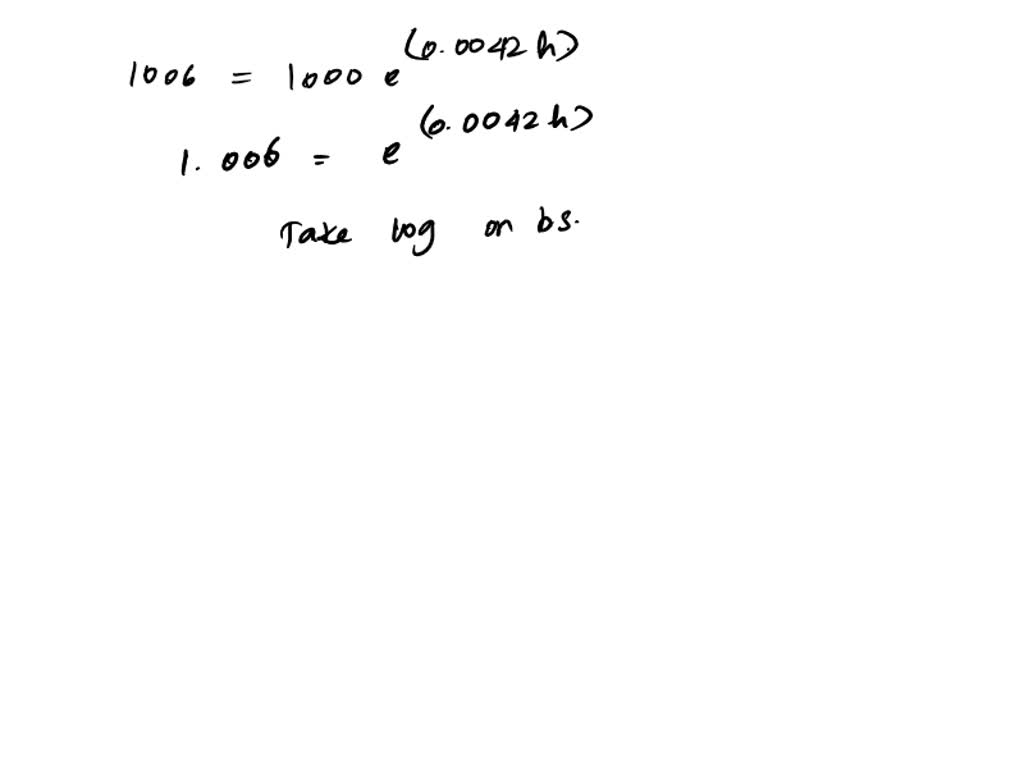 1006 = 1000 e^(0.0042 h)
1.006 = e^(0.0042 h)
Take log on bs.